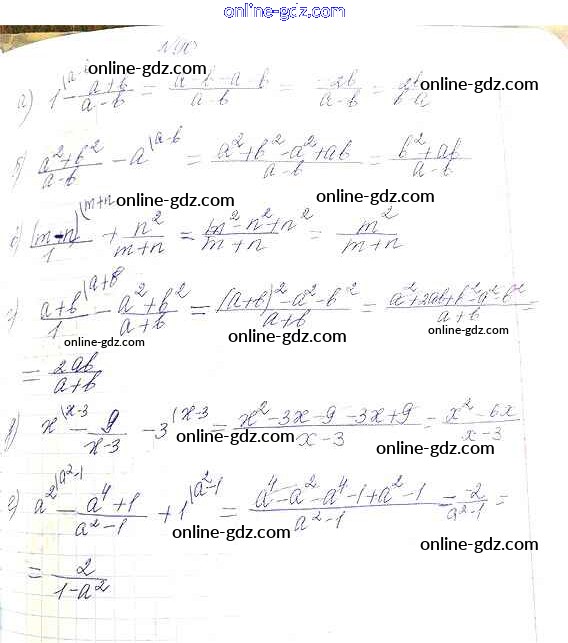 online-gdz.com
№90
online-gdz.com
а) 1^{\a-b} - (a+b)/(a-b) = (a-b-a-b)/(a-b) = -2b/(a-b) = 2b/(b-a) online-gdz.com
б) (a²+b²)/(a-b) - a^{\a-b} = (a²+b²-a²+ab)/(a-b) = (b²+ab)/(a-b)
online-gdz.com online-gdz.com
в) (m-n)/1^{\m+n} + n²/(m+n) = (m²-n²+n²)/(m+n) = m²/(m+n)
г) (a+b)/1^{\a+b} - (a²+b²)/(a+b) = ((a+b)²-a²-b²)/(a+b) = (a²+2ab+b²-a²-b²)/(a+b) =
online-gdz.com online-gdz.com online-gdz.com
= 2ab/(a+b)
в) x^{\x-3} - 9/(x-3) - 3^{\x-3} = (x²-3x-9-3x+9)/(x-3) = (x²-6x)/(x-3)
online-gdz.com online-gdz.com
е) a²^{\a²-1} - (a⁴+1)/(a²-1) + 1^{\a²-1} = (a⁴-a²-a⁴-1+a²-1)/(a²-1) = -2/(a²-1) =
online-gdz.com online-gdz.com
= 2/(1-a²)